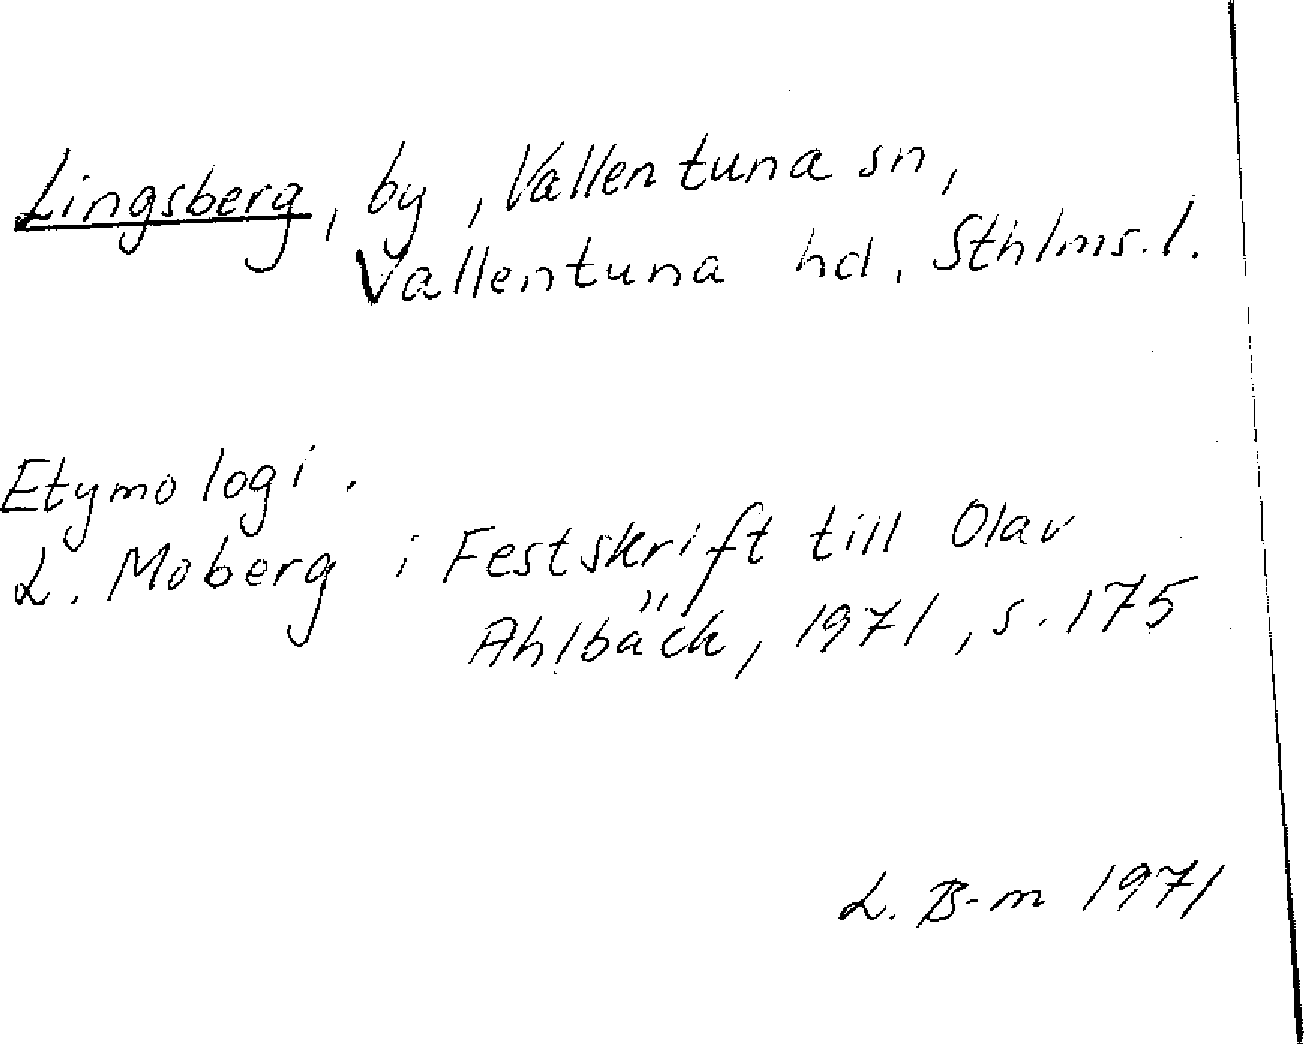 Lingsberg, by, Vallentuna sn,
Vallentuna hd, Sthlms. l.
Etymologi.
L. Moberg i Festskrift till Olav
Ahlbäck, 1971, s. 175
L. B-m 1971